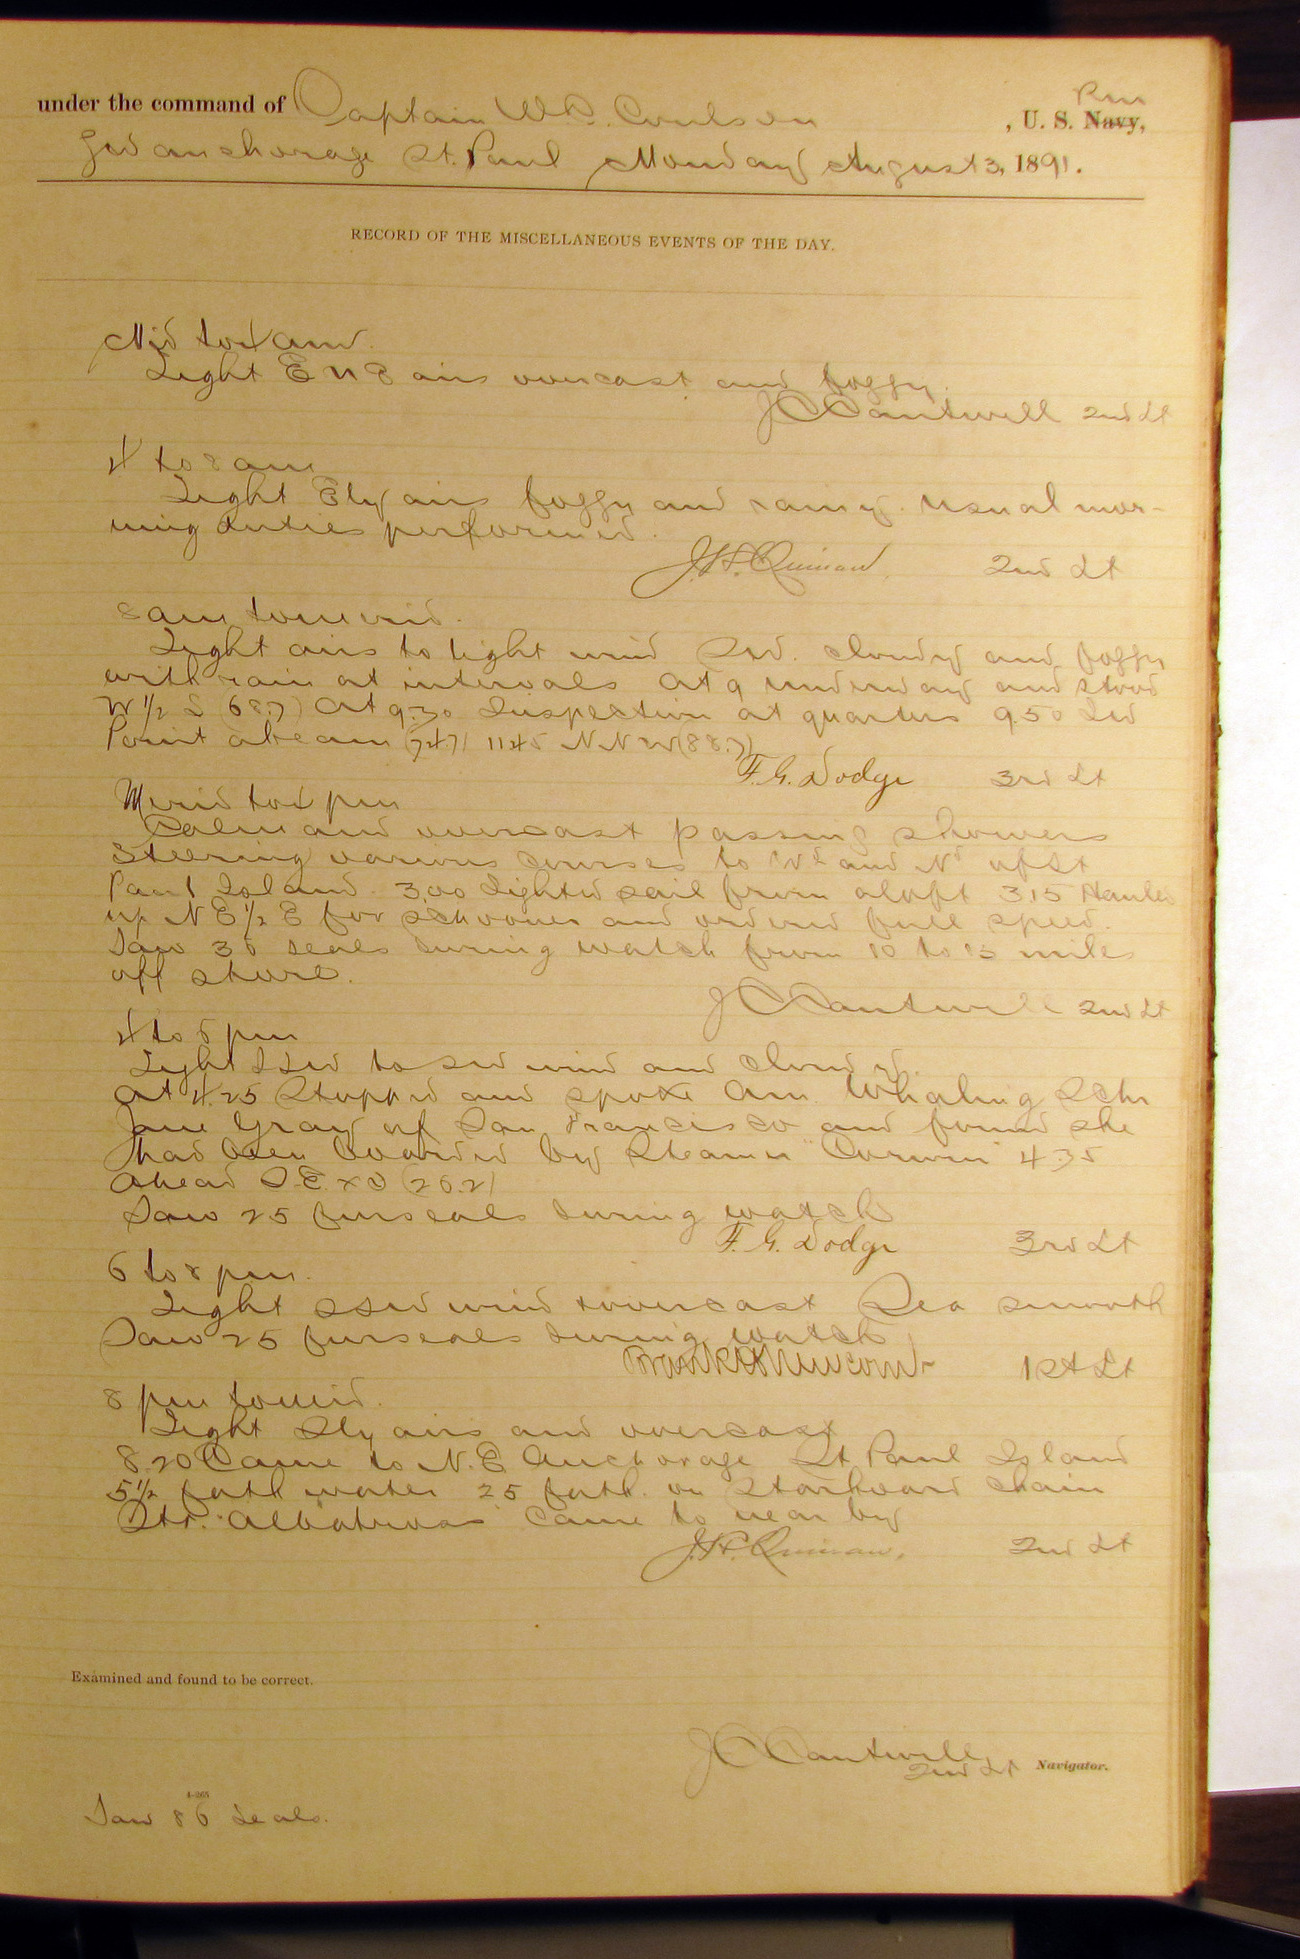 under the command of Captain W.C. Coulson, U. S. Navy, RM
SW anchorage St. Paul Monday August 3, 1891.
RECORD OF THE MISCELLANEOUS EVENTS OF THE DAY.
Mid to 4 am.
Light ENE airs overcast and foggy.
J C Cantwell 2nd Lt
4 to 8 am
Light Ely airs foggy and rainy. Usual mor-
ning duties performed.
J.H. Quinan. 2nd Lt
8 am to merid.
Light airs to light wind Sd. cloudy and foggy
with rain at intervals At 9 underway and stood
W 1/2 S (68.7) At 9.30 Inspection at quarters 9.50 SW
Point abeam (74.7) 11 45 NNW (88.7)
F. G. Dodge 3rd Lt
Merid to 4 pm
Calm and overcast passing showers
Steering various courses to Wd and Nd of St
Paul Island. 3.00 Sighted sail from aloft 3.15 Hauled
up NE 1/2 E for schooner and ordered full speed.
Saw 36 seals during watch from 10 to 15 miles
off shore.
J C Cantwell 2nd Lt
4 to 6 pm
Light SSW to SW wind and cloudy.
At 4.25 Stopped and spoke Am. Whaling Schr
Jane Gray of San Francisco and found she
had been boarded by Steamer "Corwin" 4.35
Ahead S.E. x S (26.2)
Saw 25 fur seals during watch
F. G. Dodge 3rd Lt
6 to 8 pm.
Light SSW wind overcast Sea smooth
Saw 25 fur seals during watch
Frank H Newcomb 1st Lt
8 pm to mid.
Light Sly airs and overcast
8.20 Came to N.E Anchorage St Paul Island
5 1/2 fath water 25 fath. on Starboard chain
Str. "Albatross" came to near by
J.H. Quinan. 2nd Lt
Examined and found to be correct.
J C Cantwell
2nd Lt Navigator.
4-265
Saw 86 seals.